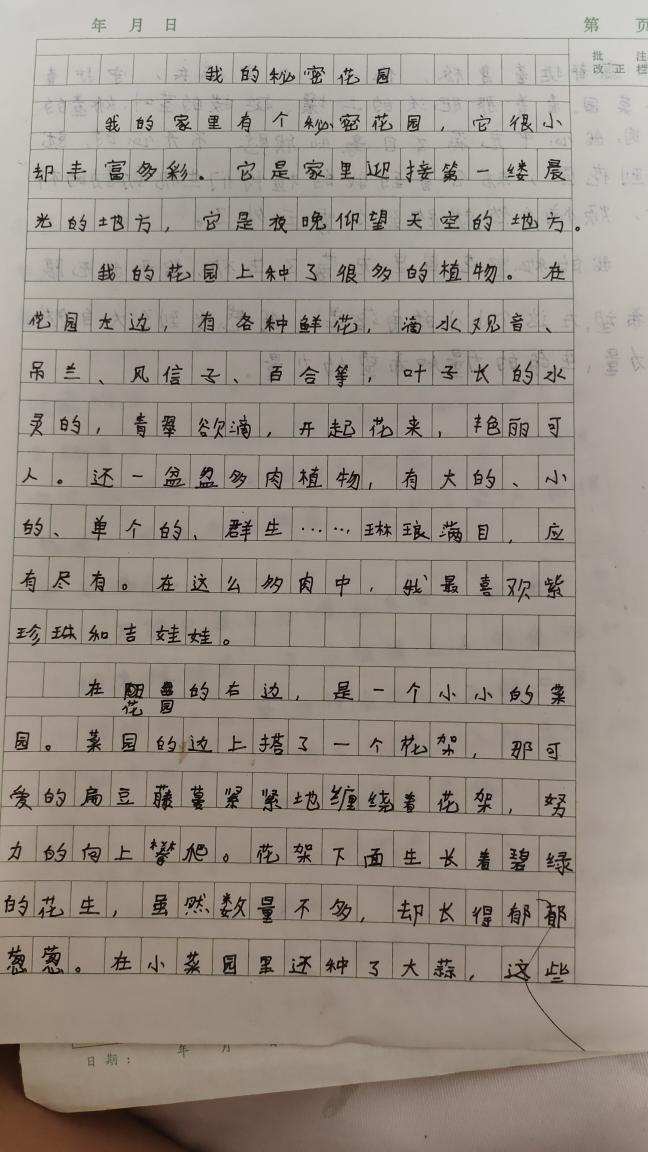 年 月 日
第 页
批 注
改 正 栏
我的秘密花园
我的家里有个秘密花园，它很小
却丰富多彩。它是家里迎接第一缕晨
光的地方，它是夜晚仰望天空的地方。
我的花园上种了很多的植物。在
花园左边，有各种鲜花，滴水观音、
吊兰、风信子、百合等，叶子长的水
灵的，青翠欲滴，开起花来，艳丽可
人。还一盆盆多肉植物，有大的、小
的、单个的、群生……琳琅满目，应
有尽有。在这么多肉中，我最喜欢紫
珍珠和吉娃娃。
在花园的右边，是一个小小的菜
园。菜园的边上搭了一个花架，那可
爱的扁豆藤蔓紧紧地缠绕着花架，努
力的向上攀爬。花架下面生长着碧绿
的花生，虽然数量不多，却长得郁郁
葱葱。在小菜园里还种了大蒜，这些
日期： 年 月